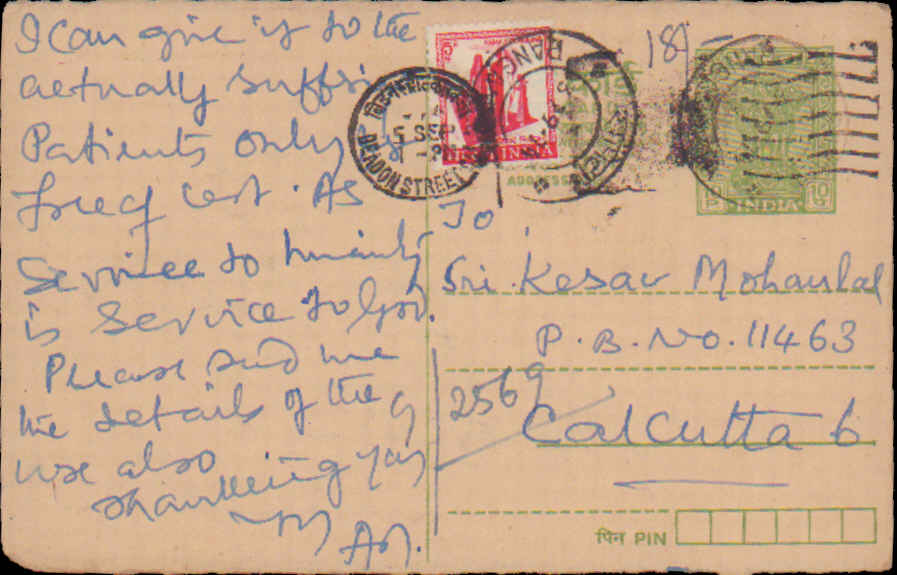 I can give it to the
actually suffring
Patients only
free of cost. As
service to humanity
is service to God.
Please send me
the details of the
use also
Thanking you
181
BEADON STREET
5 SEP
INDIA
ADDRESS
P INDIA 10
To,
Sri. Kesav Mohanlal
P.B.No. 11463
2569
Calcutta 6
पिन PIN